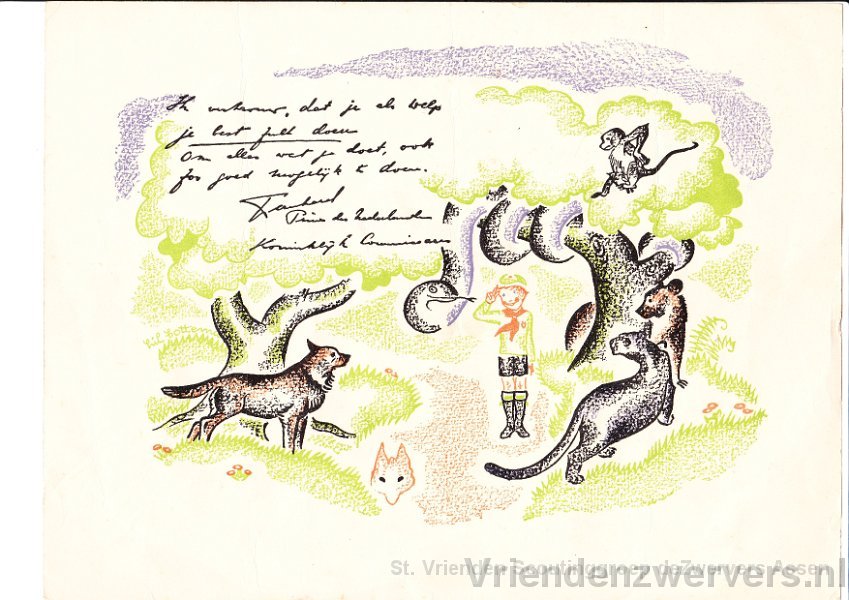 Ik vertrouw, dat je als welp
je best zult doen
om alles wat je doet, ook
zo goed mogelijk te doen.
Bernhard
Prins der Nederlanden
Koninklijk Commissaris
St. Vrienden Scoutinggroep deZwervers Assen
Vriendenzwervers.nl